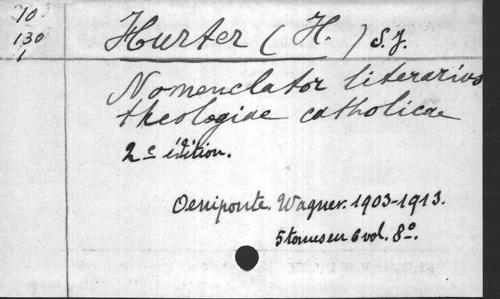 10
130
1
Hurter (H.) S. J.
Nomenclator literarius
theologiae catholicae
2e édition.
Oeniponte. Wagner. 1903-1913.
5 tomes en 6 vol. 8º.